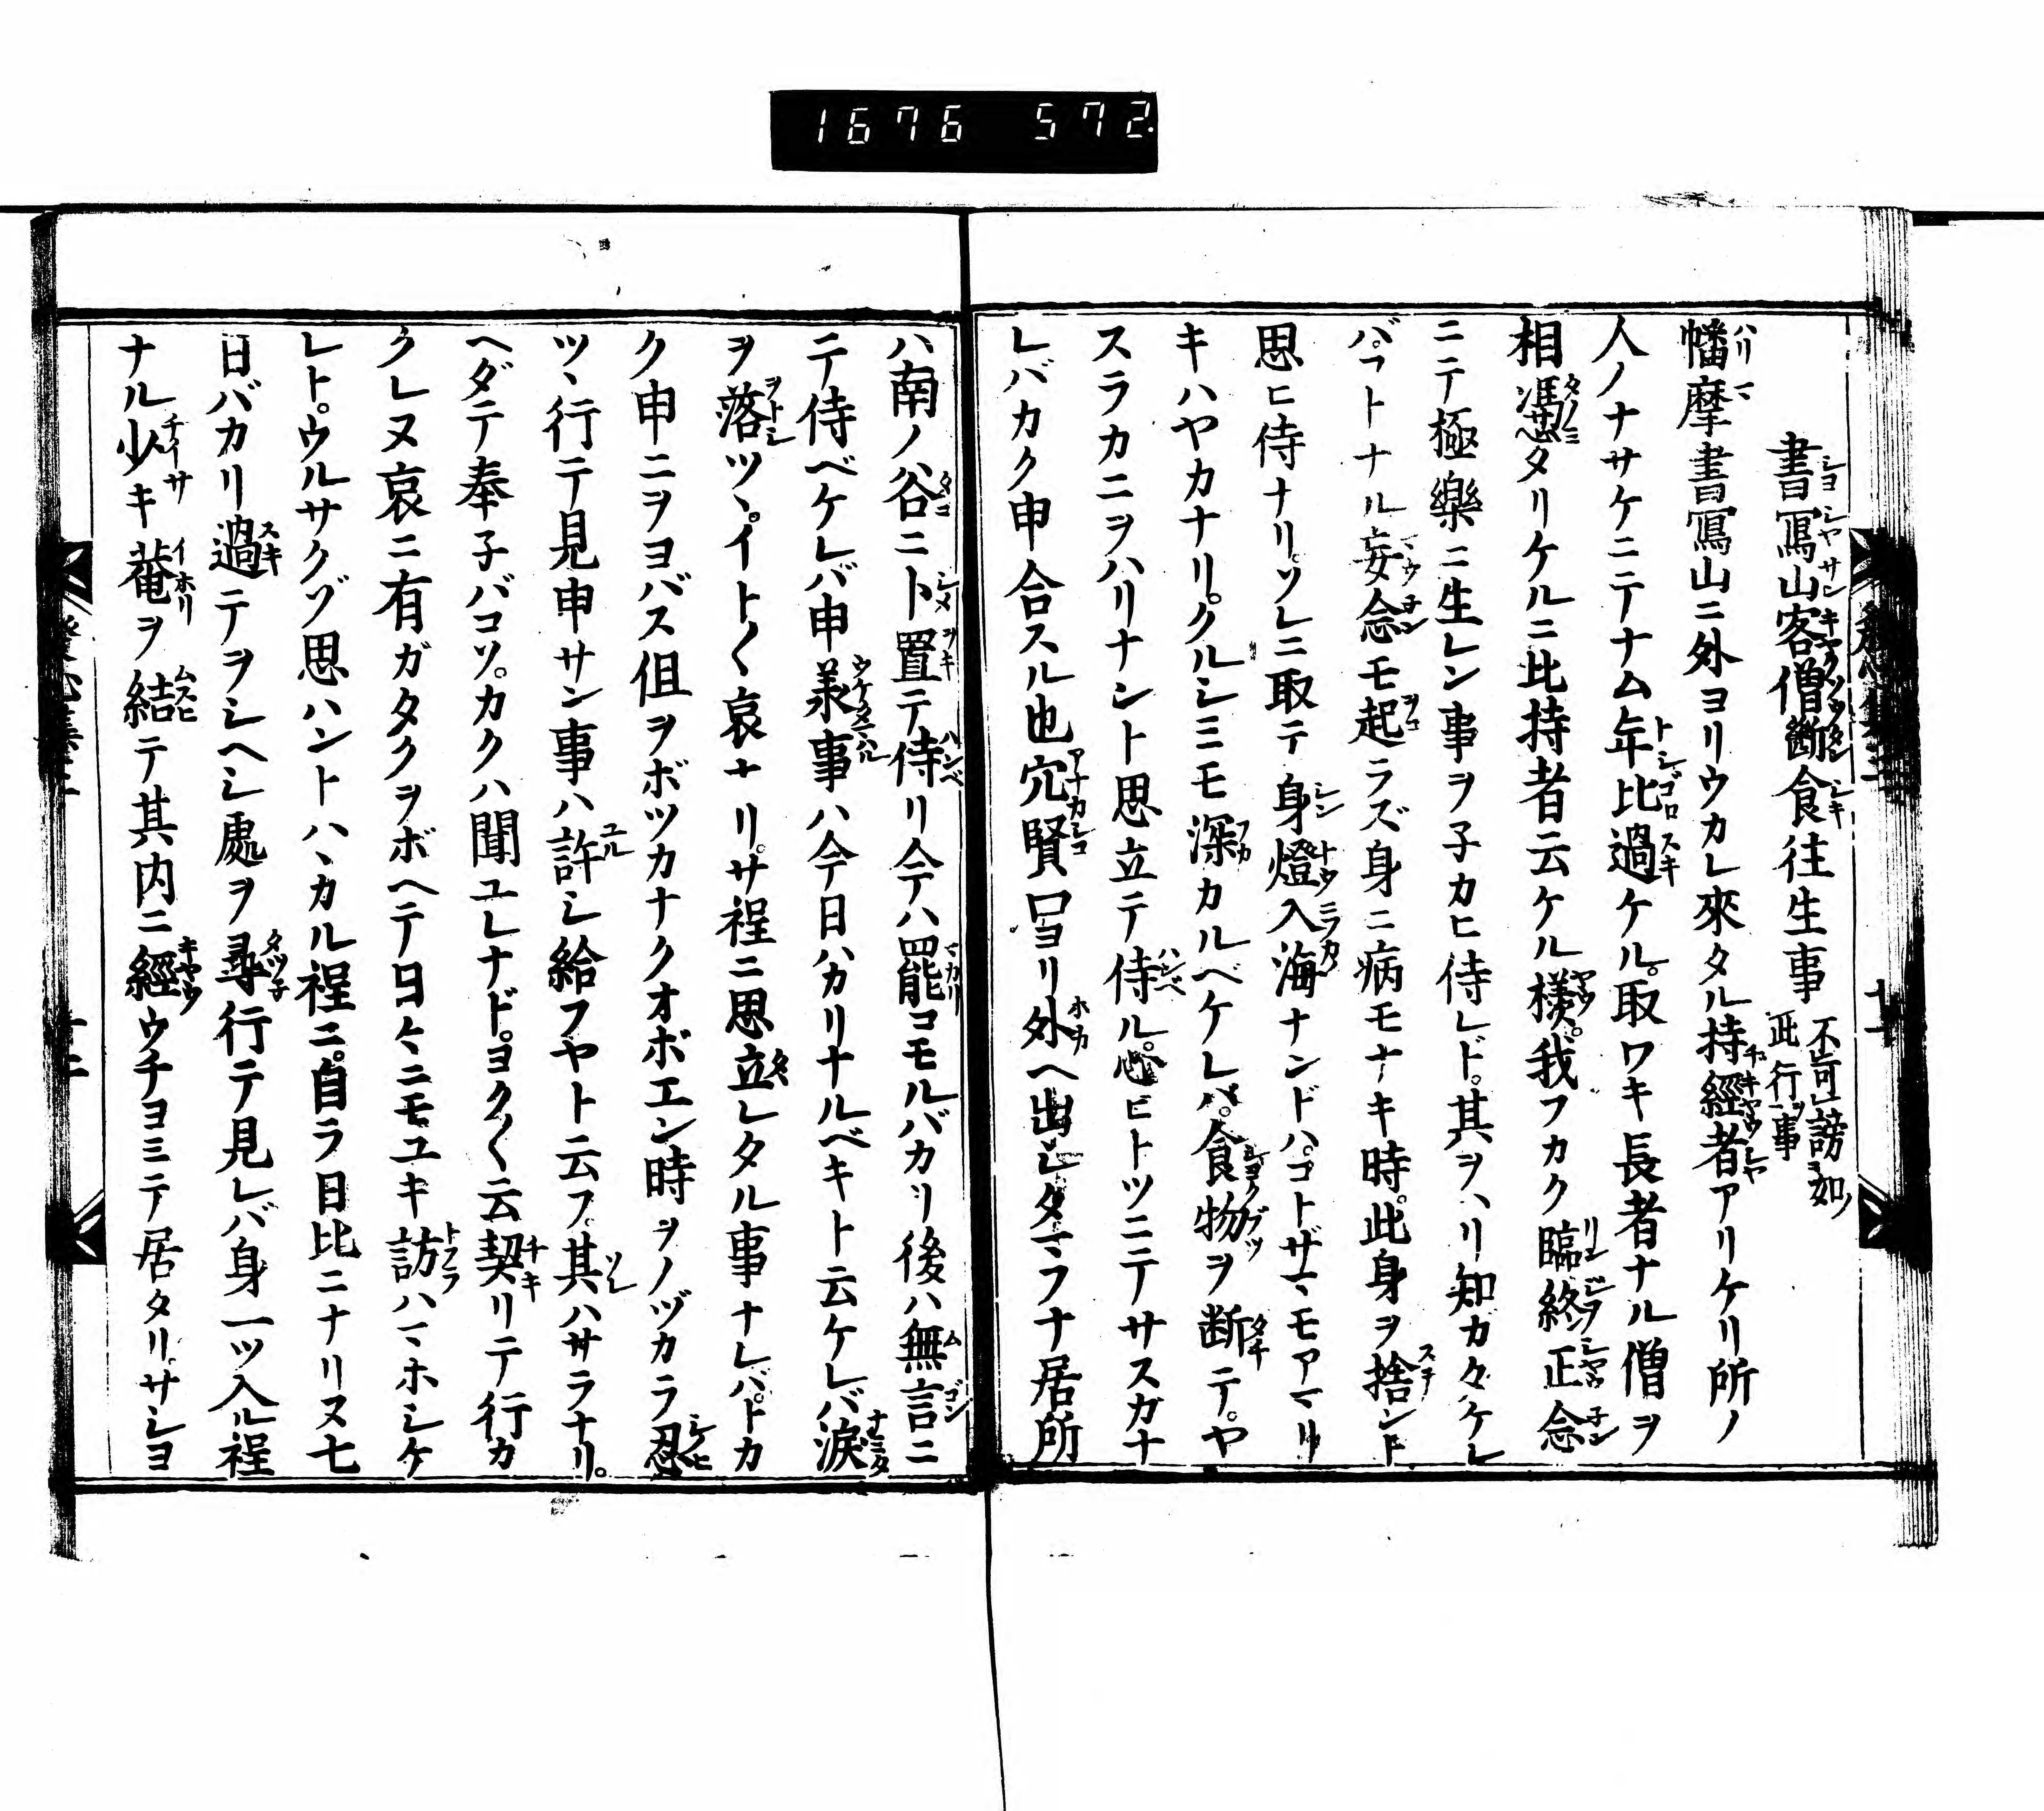 1676 572
書寫山客僧斷食往生事 不可謗如此行事
幡摩書寫山ニ外ヨリウカレ來タル持經者アリケリ所ノ
人ノナサケニテナム年比過ケル。取ワキ長者ナル僧ヲ
相憑タリケルニ此持者云ケル樣。我フカク臨終正念
ニテ極樂ニ生レン事ヲ子カヒ侍レド。其ヲハリ知カタケレ
バ。コトナル妄念モ起ラズ身ニ病モナキ時。此身ヲ捨ント
思ヒ侍ナリ。ソレニ取テ身燈入海ナンドハ。コトザマモアマリ
キハヤカナリ。クルシミモ深カルベケレバ。食物ヲ断テ。ヤ
スラカニヲハリナント思立テ侍ル。心ヒトツニテサスガナ
レバカク申合スル也穴賢口ヨリ外ヘ出シタマフナ居所
ハ南ノ谷ニト置テ侍リ今ハ罷コモルバカリ後ハ無言ニ
テ侍ベケレバ申羕事ハ今日ハカリナルベキト云ケレバ淚
ヲ落ツヽ。イト〱哀ナリ。サ程ニ思立レタル事ナレバ。トカ
ク申ニヲヨバス但ヲボツカナクオボエン時ヲノヅカラ忍
ツヽ行テ見申サン事ハ許シ給フヤト云フ。其ハサラナリ。
ヘダテ奉子バコソ。カクハ聞ユレナド。ヨク〱云契リテ行カ
クレヌ哀ニ有ガタクヲボヘテ日ケニモユキ訪ハマホシケ
レト。ウルサクゾ思ハントハヽカル程ニ。自ラ日比ニナリヌ七
日バカリ過テヲシヘシ處ヲ尋行テ見レバ身一ツ入ル程
ナル少キ菴ヲ結テ其内ニ經ウチヨミテ居タリ。サシヨ